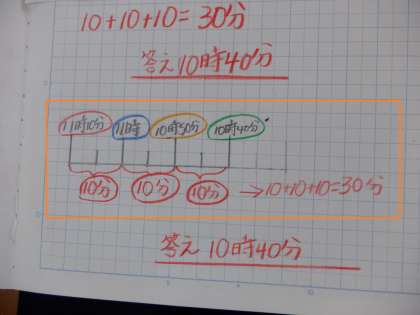 10+10+10=30分
答え10時40分
11時10分 11時 10時50分 10時40分
10分 10分 10分 →10+10+10=30分
答え 10時40分